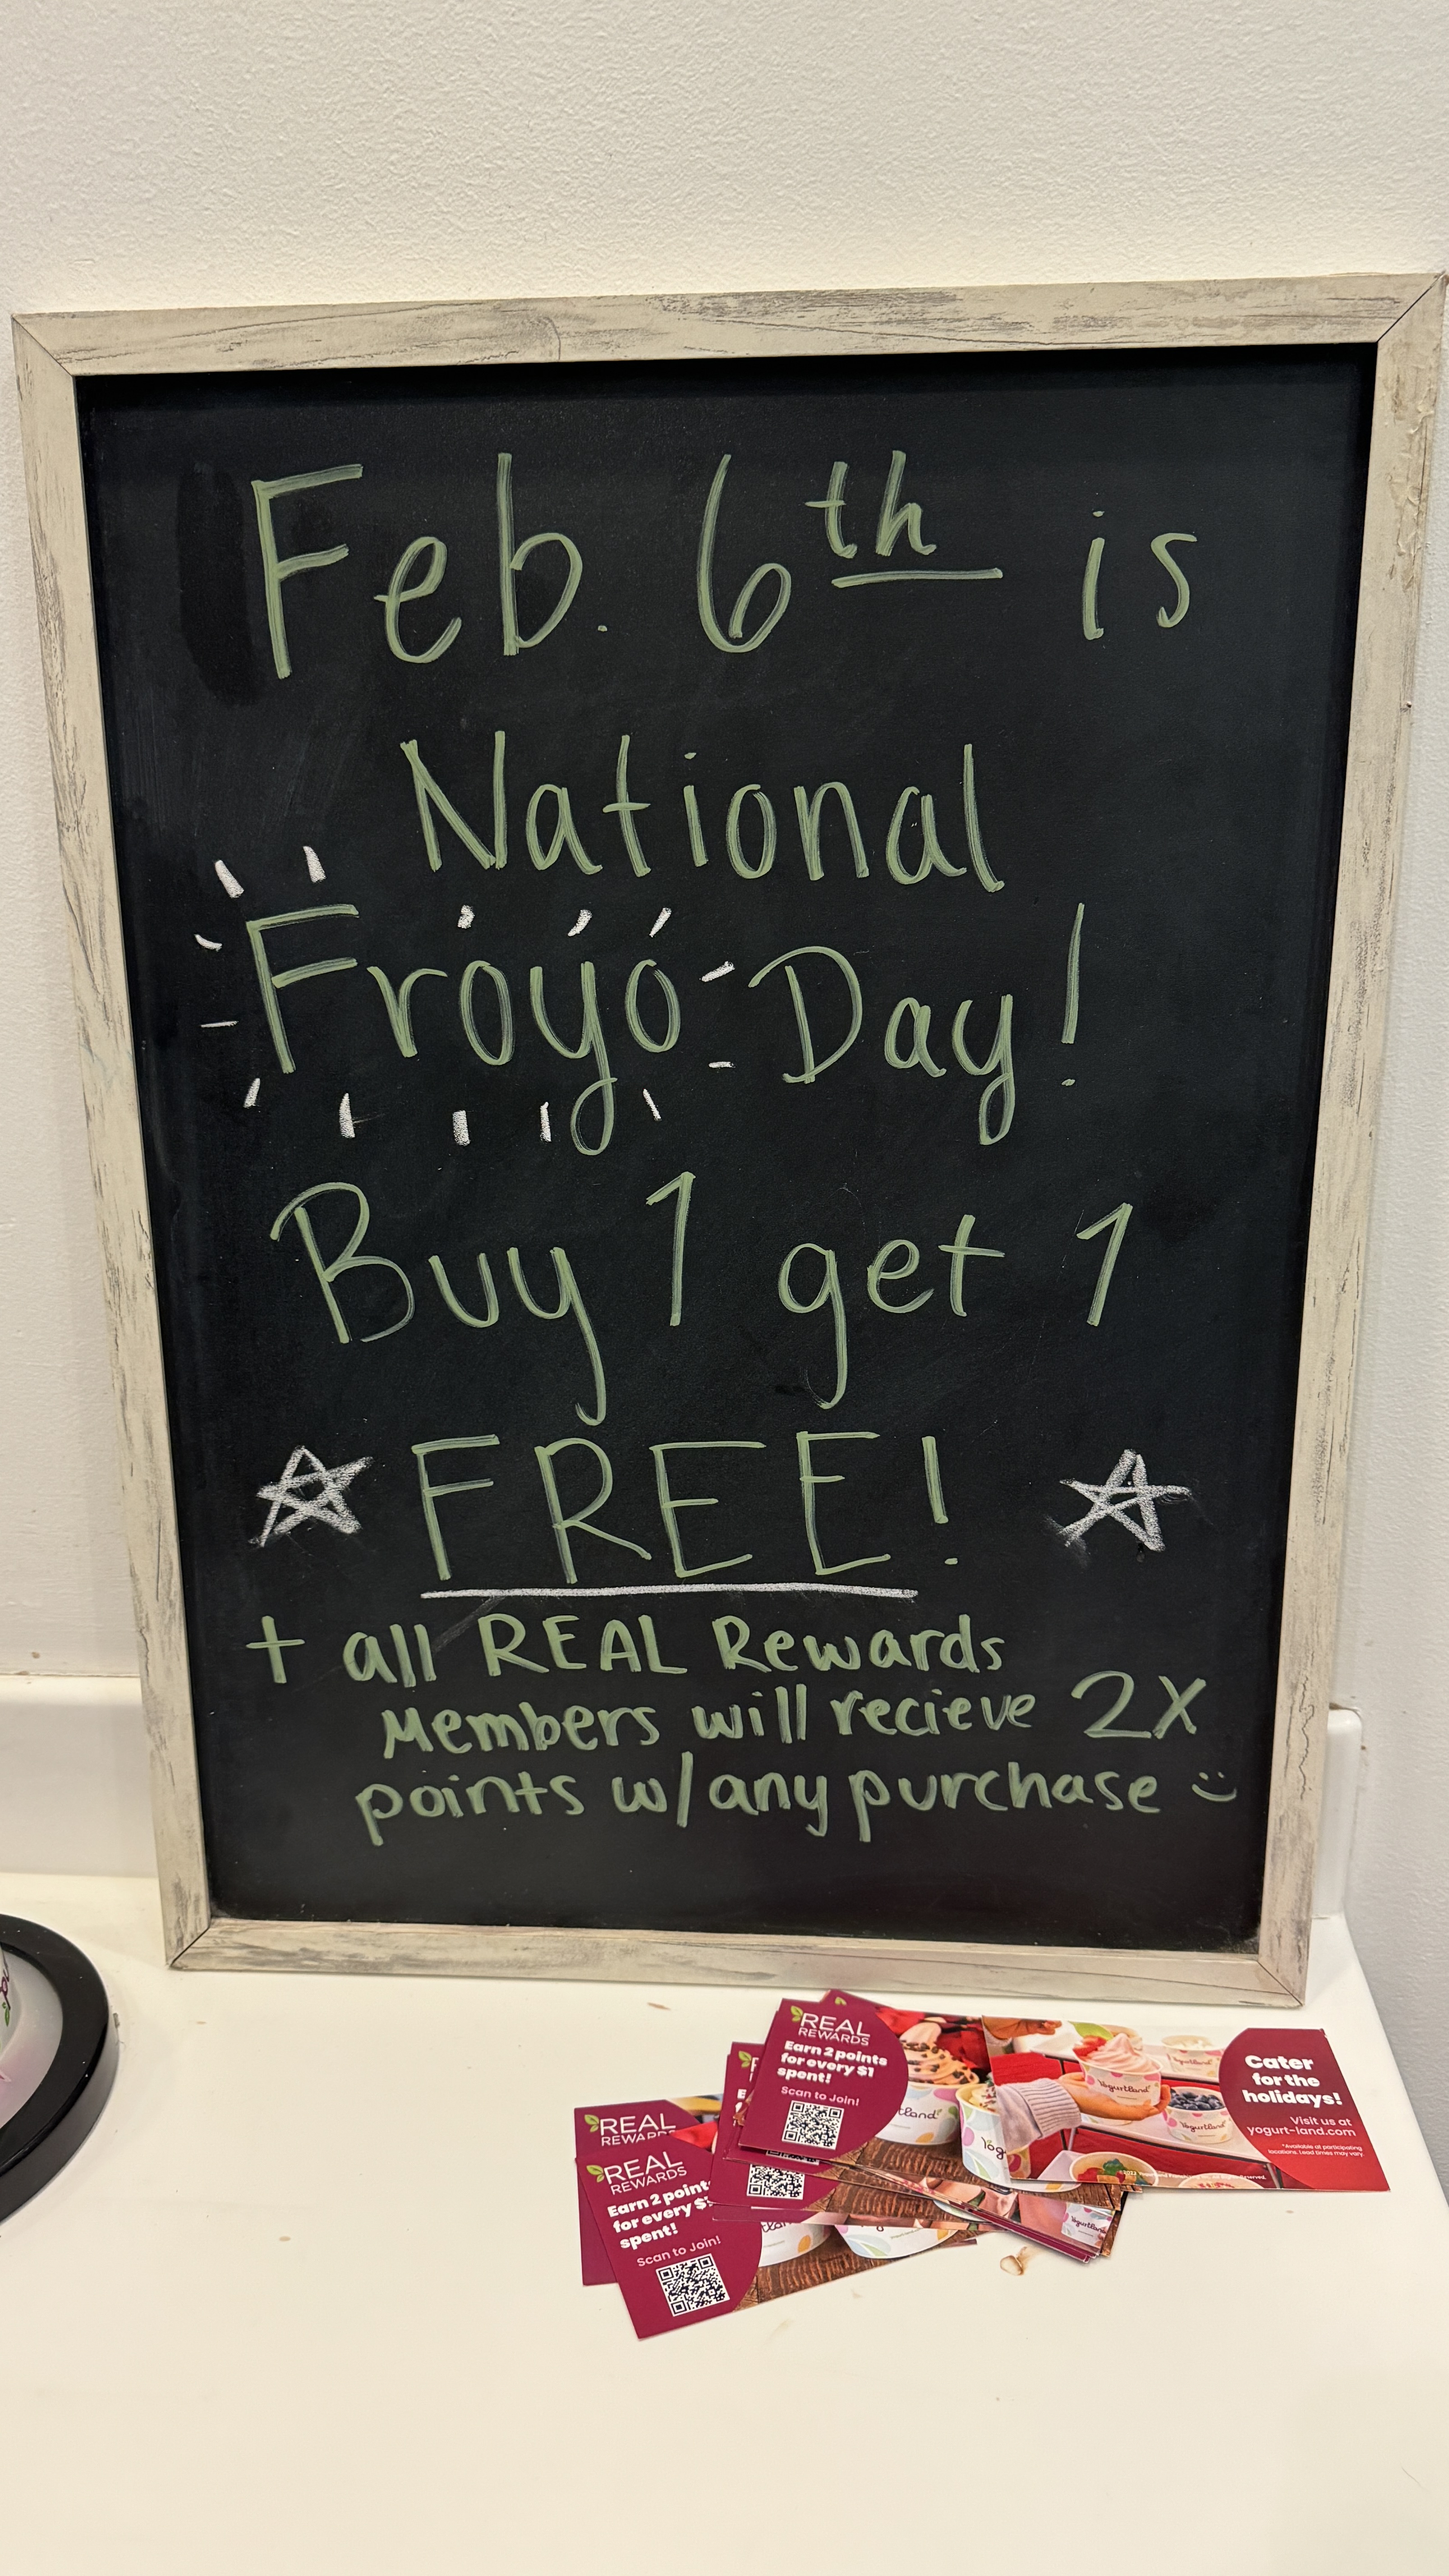 Feb. 6th is
National
Froyo Day!
Buy 1 get 1
FREE!
+ all REAL Rewards
Members will recieve 2X
points w/ any purchase :)
REAL
REWARDS
Earn 2 points
for every $1
spent!
Scan to Join!
Yogurtland
Yogurtland
Cater
for the
holidays!
Visit us at
yogurt-land.com
*Available at participating
locations. Lead times may vary.
REAL
REWARDS
REAL
REWARDS
Earn 2 point
for every $
spent!
Scan to Join!